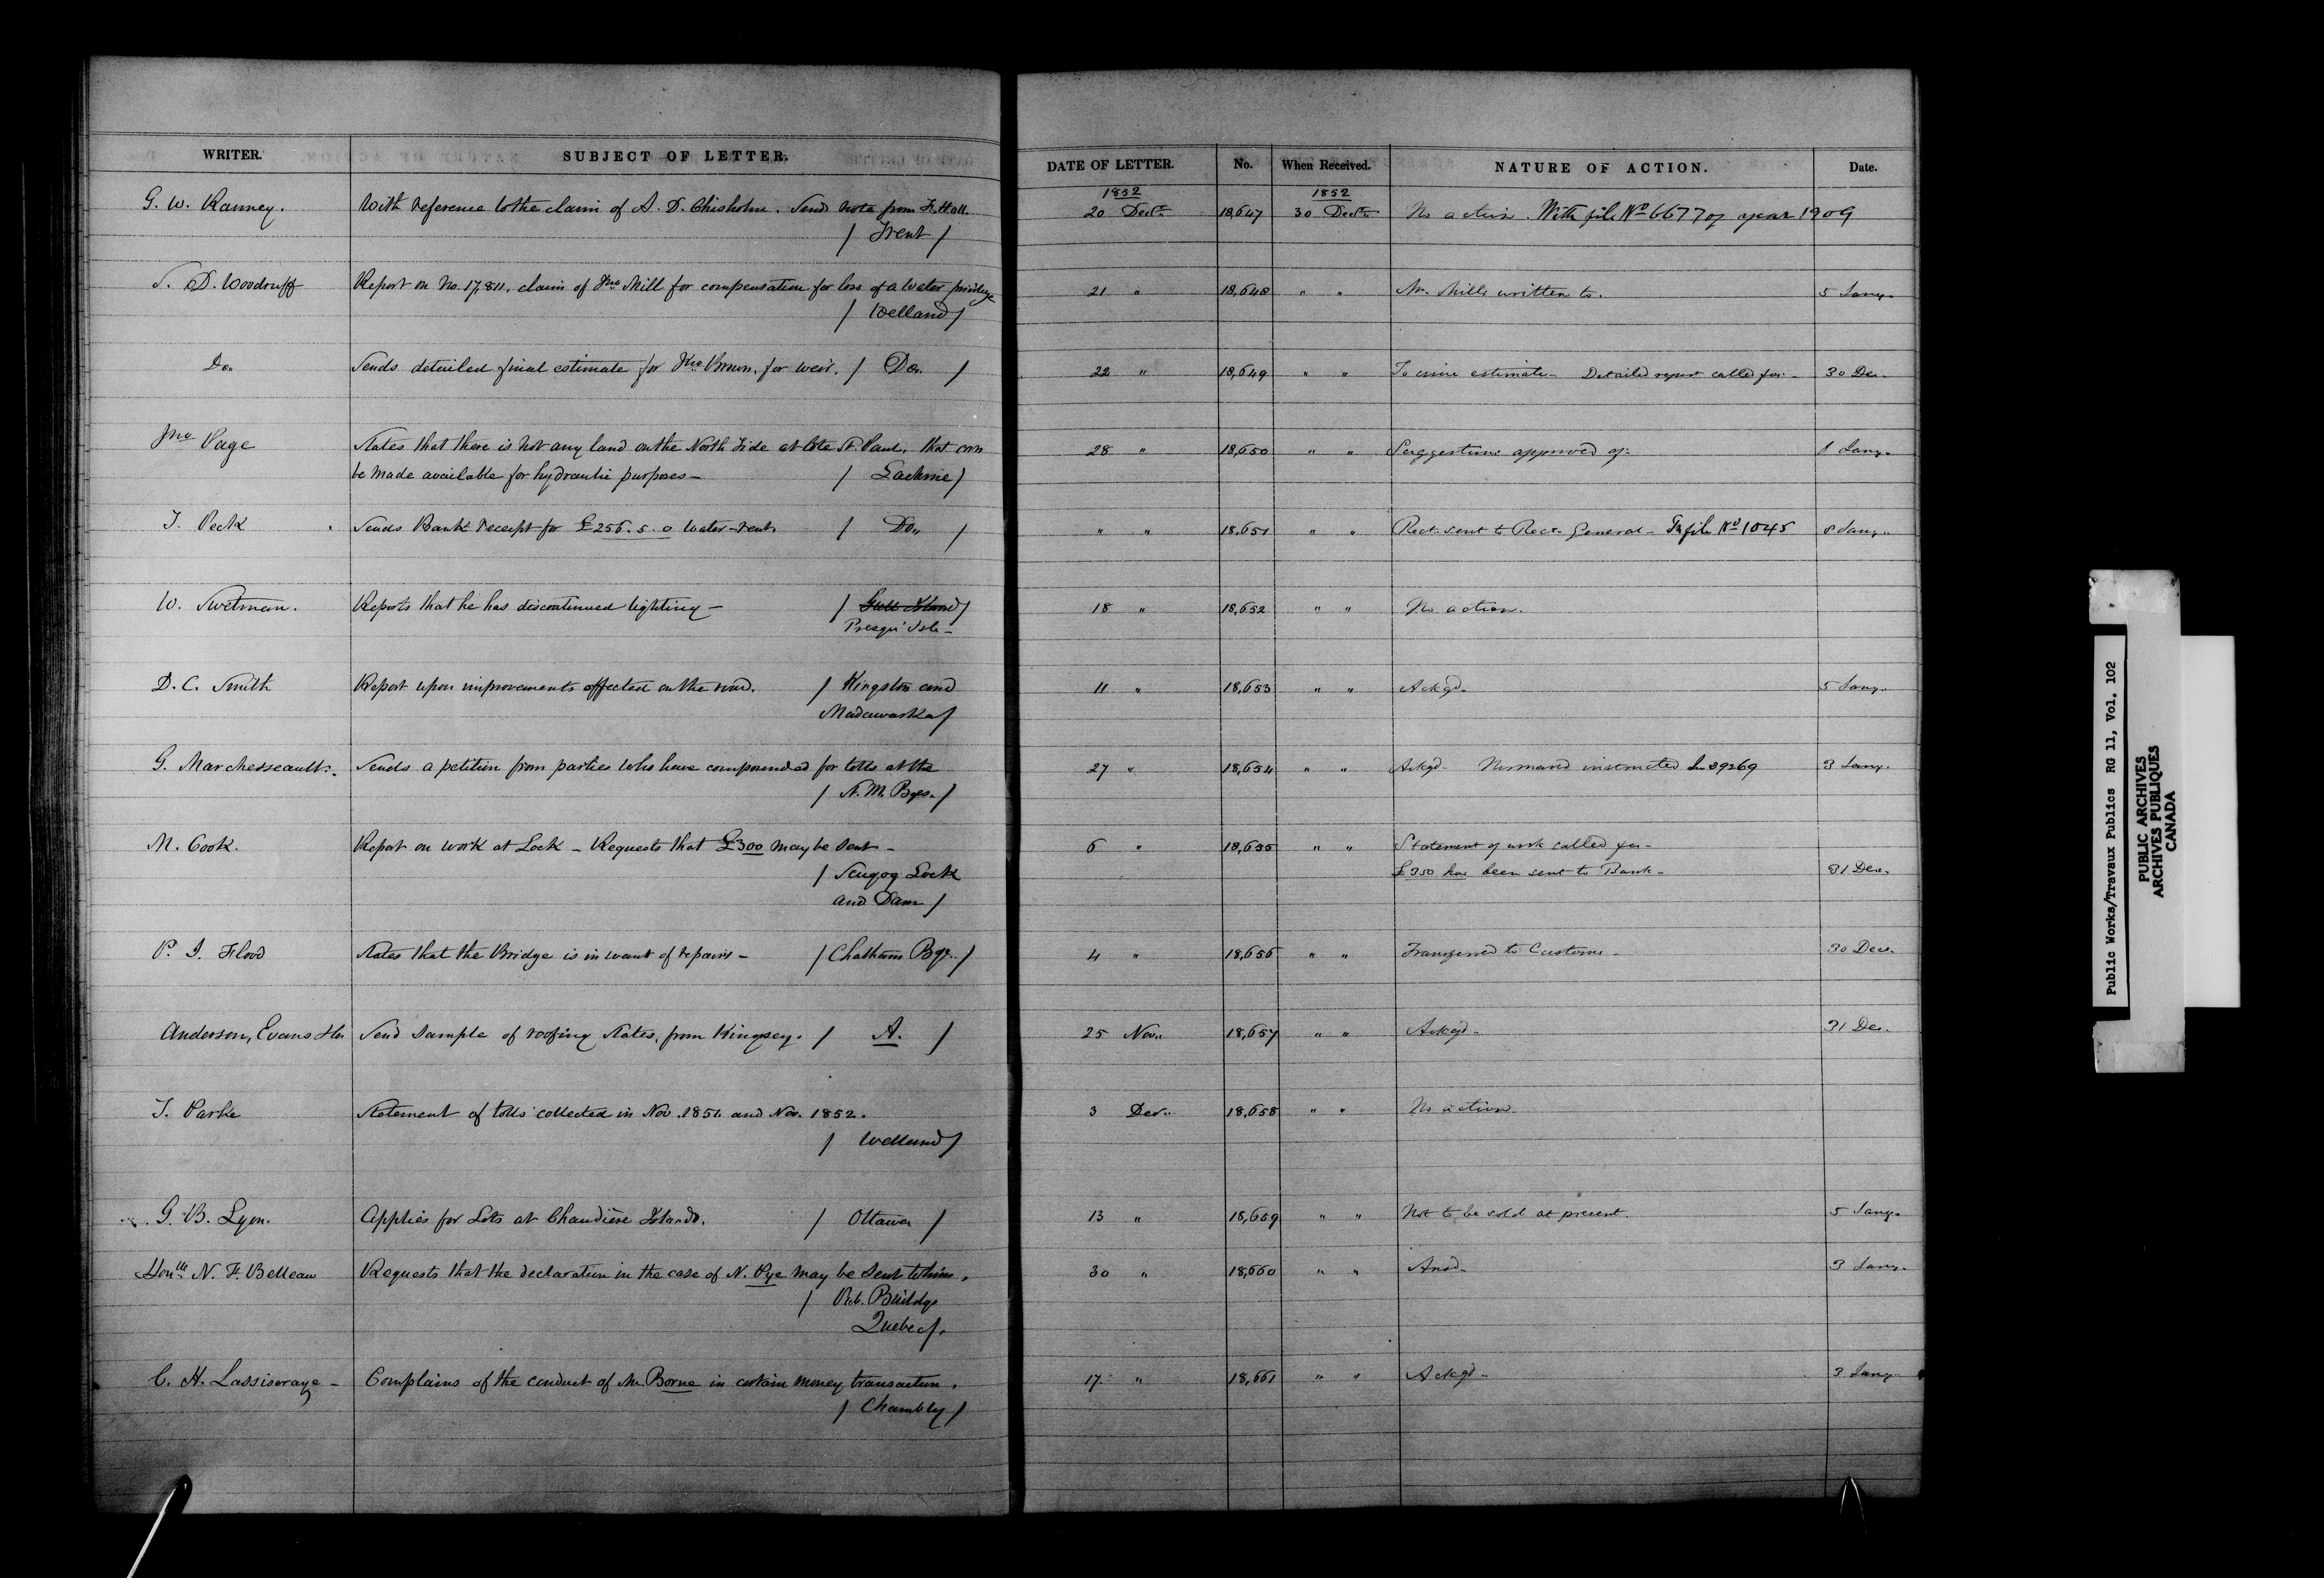 WRITER. SUBJECT OF LETTER. DATE OF LETTER. No. When Received. NATURE OF ACTION. Date.
1852 1852
G. W. Ranney. With reference to the claim of A. D. Chisholm. Sends note from F. Hall. 20 Decr. 18,647 30 Decr. No action. With file No 6677 of year 1909
/ Trent /
S. D. Woodruff Report on No. 17,811, claim of Jno Mill for compensation for loss of a water privilege 21 " 18,648 " " Mr. Mills written to. 5 Jany.
/ Welland /
Do. Sends detailed final estimate for Jno Brown, for weir. / Do. / 22 " 18,649 " " estimate - Detailed report called for - 30 Dec.
Jno Page States that there is not any land on the North Side at Cote St. Paul, that can 28 " 18,650 " " Suggestions approved of. 8 Jany.
be made available for hydraulic purposes - / Lachine /
J. Peck Sends Bank receipt for £256. 5. 0 water-rent. / Do. / " " 18,651 " " Rect. sent to Recr. General - In file No 1045 8 Jany.
W. Swetman. Reports that he has discontinued lighting - / Gull Island / 18 " 18,652 " " No action.
Presqu' Isle -
D. C. Smith Report upon improvements effected on the road. / Kingston and 11 " 18,653 " " Ackgd. 5 Jany.
Madawaska /
G. Marchesseault. Sends a petition from parties who have compounded for tolls at the 27 " 18,654 " " Ackgd. Normand instructed In 39269 3 Jany.
/ N. M. Bges. /
M. Cook. Report on work at Lock - Requests that £300 may be sent - 6 " 18,655 " " Statement of work called for -
/ Scugog Lock £350 has been sent to Bank - 31 Dec.
and Dam /
P. J. Flood States that the Bridge is in want of repairs - / Chatham Bge. / 4 " 18,656 " " Transferred to Customs - 30 Dec.
Anderson, Evans & Co. Send sample of roofing slates, from Kingsey. / A. / 25 Nov. 18,657 " " Ackgd. 31 Dec.
J. Parke Statement of tolls collected in Nov. 1851. and Nov. 1852. 3 Dec. 18,658 " " No action.
/ Welland /
G. B. Lyon. Applies for Lots at Chaudière Islands. / Ottawa / 13 " 18,659 " " Not to be sold at present. 5 Jany.
Honble N. F. Belleau Requests that the declaration in the case of N. Pye may be sent to him. 30 " 18,660 " " Ansd. 3 Jany.
/ Pub. Buildgs
Quebec /.
C. H. Lassiseraye - Complains of the conduct of Mr. Borne in certain money transaction. 17 " 18,661 " " Ackgd. 3 Jany.
/ Chambly /
Public Works/Travaux Publics RG 11, Vol. 102
PUBLIC ARCHIVES
ARCHIVES PUBLIQUES
CANADA